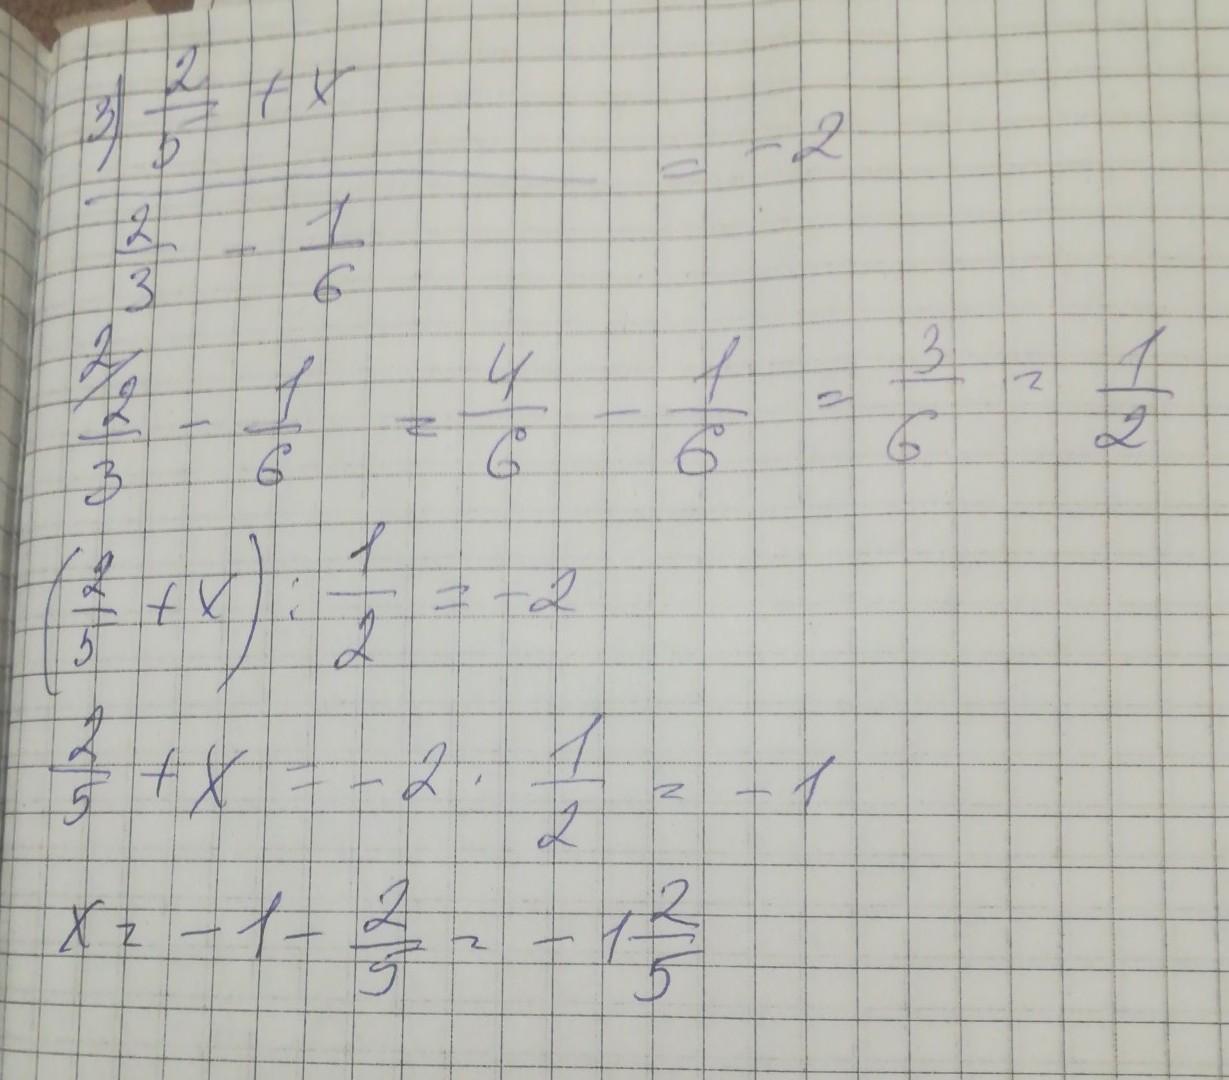 3) (2/5 + x)/(2/3 - 1/6) = -2
2/ 2/3 - 1/6 = 4/6 - 1/6 = 3/6 = 1/2
(2/5 + x) : 1/2 = -2
2/5 + x = -2 · 1/2 = -1
x = -1 - 2/5 = -1 2/5